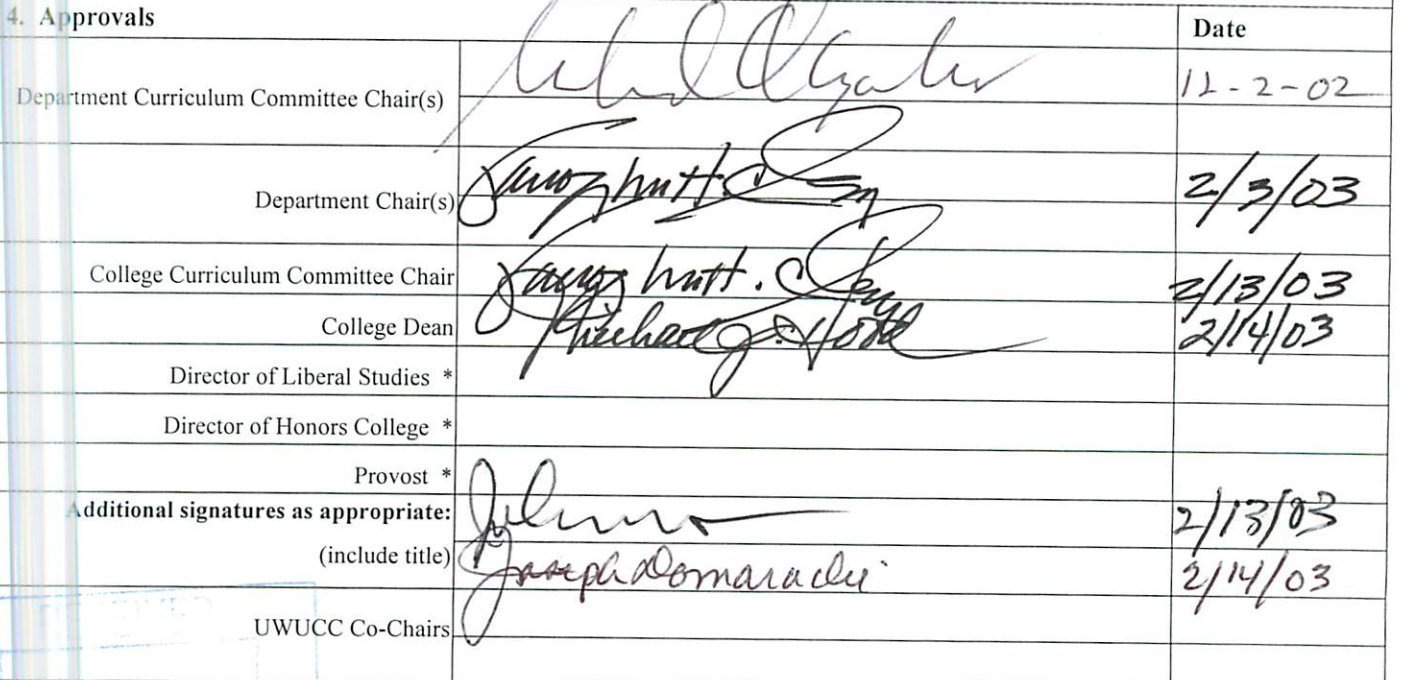 4. Approvals Date
Department Curriculum Committee Chair(s) 12-2-02
Department Chair(s) 2/3/03
College Curriculum Committee Chair 2/13/03
College Dean Michael J. Hood 2/14/03
Director of Liberal Studies *
Director of Honors College *
Provost *
Additional signatures as appropriate: 2/13/03
(include title) Joseph Domaracki 2/14/03
UWUCC Co-Chairs